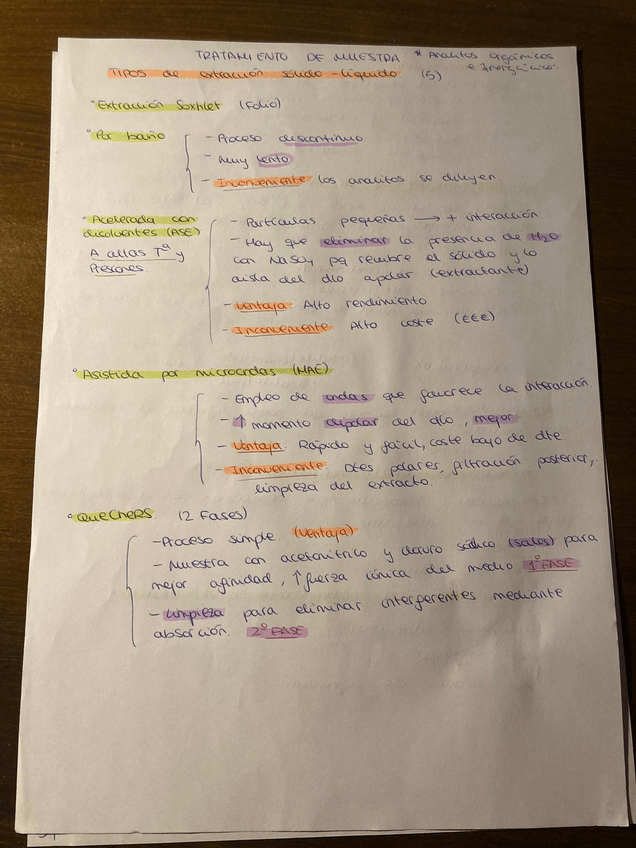 TRATAMIENTO DE MUESTRA * Analitos orgánicos
e Inorgánicos.
TIPOS de extracción sólido-líquido (5)
°Extracción Soxhlet (Folio)
°Por baño
- Proceso discontinuo
- Muy lento
- Inconveniente los analitos se diluyen
°Acelerada con
disolventes (ASE)
A altas Tª y
Presiones
- Partículas pequeñas → + interacción
- Hay que eliminar la presencia de H2O
con NaSO4 pq recubre el sólido y lo
aisla del dlo apolar (extractante)
- Ventaja: Alto rendimiento
- Inconveniente Alto coste (€€€)
°Asistida por microondas (MAE)
- Empleo de ondas que favorece la interacción
- ↑ momento dipolar del dlo, mejor
- Ventaja: Rápido y fácil, coste bajo de dte.
- Inconveniente: Dtes polares, filtración posterior,
limpieza del extracto.
°QueChERS. (2 Fases)
- Proceso simple (Ventaja)
- Muestra con acetonitrico y cloruro sódico (sales) para
mejor afinidad, ↑ fuerza iónica del medio 1º FASE
- Limpieza para eliminar interferentes mediante
absorción. 2º FASE